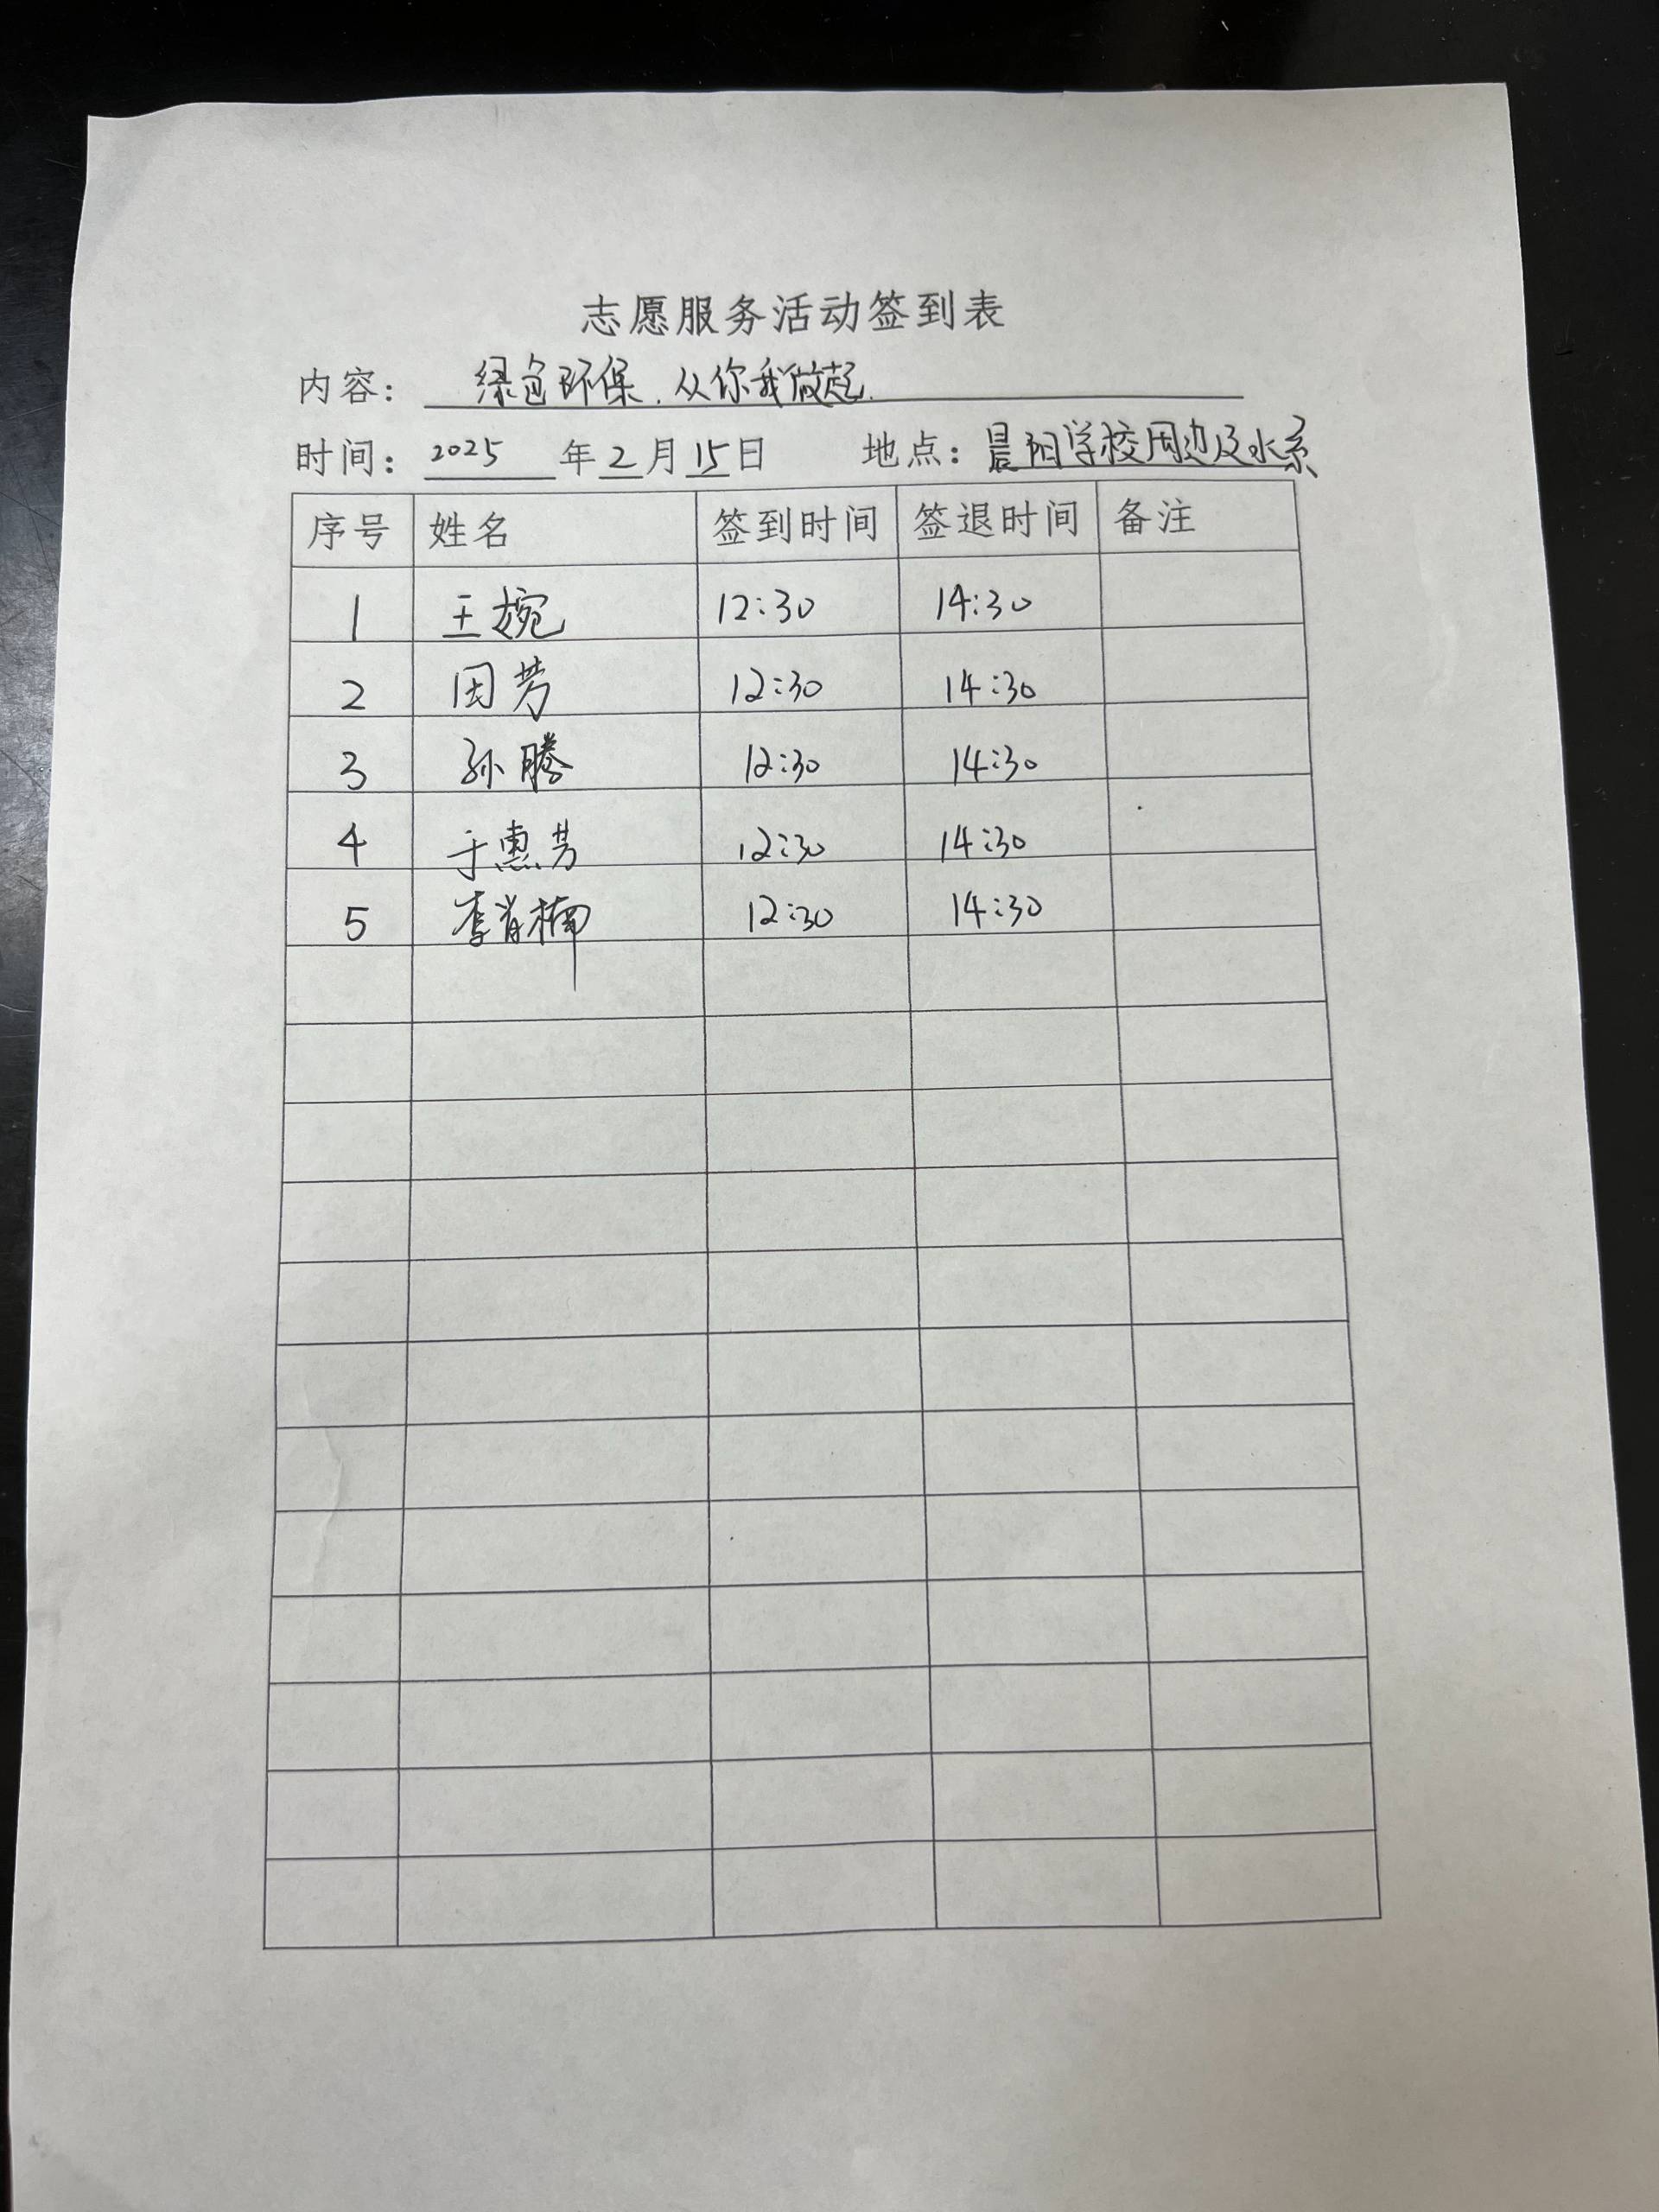 志愿服务活动签到表
内容: 绿色环保.从你我做起.
时间: 2025 年 2 月 15 日 地点: 晨阳学校周边及水系
序号 姓名 签到时间 签退时间 备注
1 王婉 12:30 14:30
2 田芳 12:30 14:30
3 孙腾 12:30 14:30
4 于惠芳 12:30 14:30
5 李肖楠 12:30 14:30